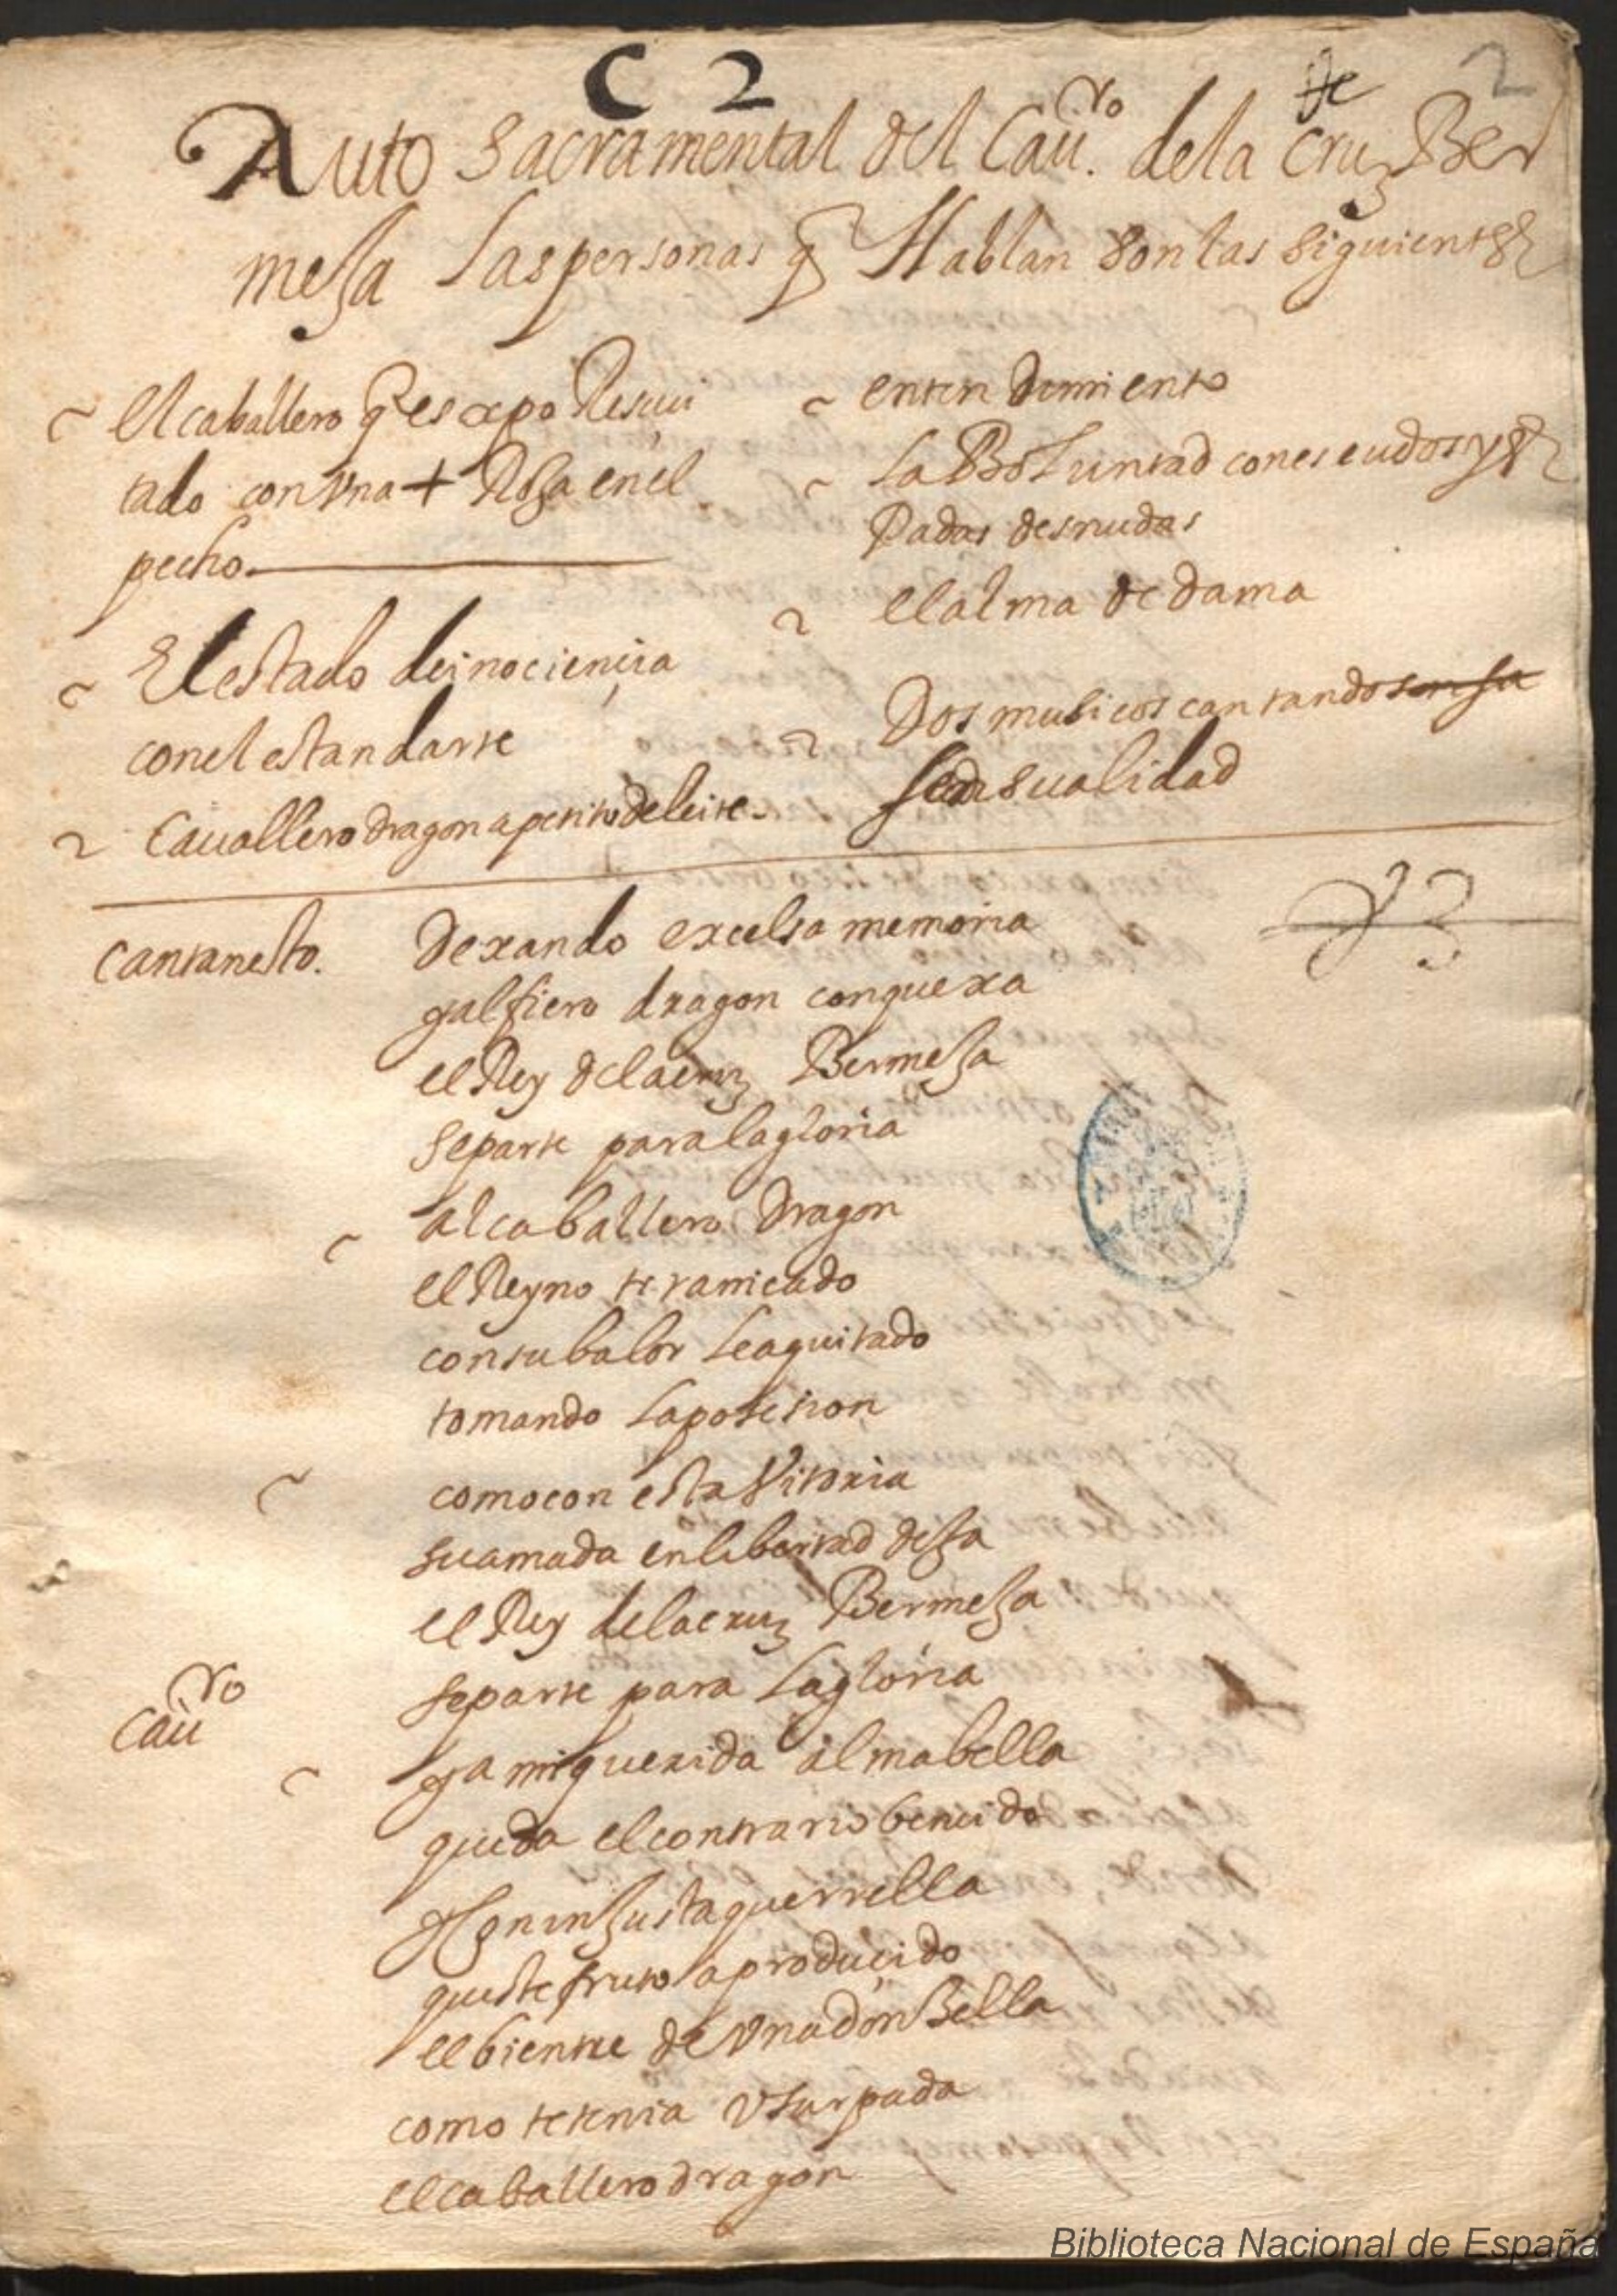 C 2
2
Auto sacramental del Cauro. dela cruz Ber
mexa Las personas q Hablan son las siguientes
El caballero q es xpo Resuci
tado con Vna + Roxa en el
pecho.
El estado de inociencia
con el estandarte
Cauallero dragon apetito deleite.
entendimiento
La Boluntad con escudos y es
Padas desnudas
el alma de dama
Dos musicos cantando
sensualidad
Cantan esto.
Dexando excelsa memoria
y al fiero dragon con quexa
el Rey de la cruz Bermexa
se parte para la gloria
al caballero Dragon
el Reyno teranicado
con su balor le a quitado
tomando la posesion
como con esta Vitoria
su amada en libertad dexa
el Rey de la cruz Bermexa
Cauro
se parte para la gloria
ya mi querida alma bella
queda el contrario bencido
y con inxusta querrella
queste fruto a producido
el bientre de Vna donsella
como te tenia Vsurpada
el caballero dragon
Biblioteca Nacional de España